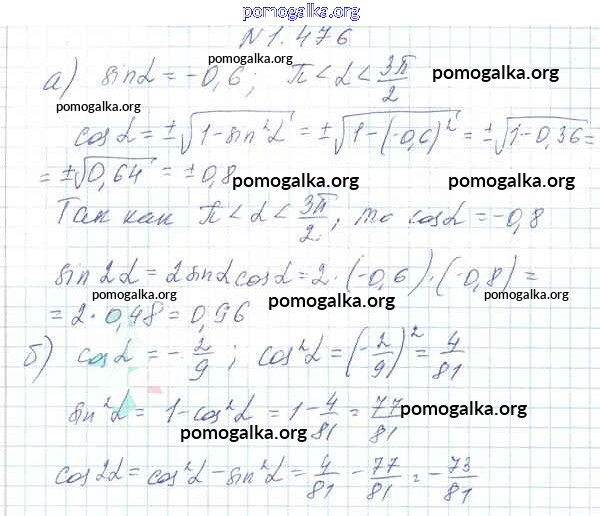 pomogalka.org
N 1.476
а) sinα = -0,6; π < α < 3π/2 pomogalka.org
pomogalka.org pomogalka.org
cosα = ±√(1-sin²α) = ±√(1-(-0,6)²) = ±√(1-0,36) =
= ±√0,64 = ±0,8 pomogalka.org pomogalka.org
Так как π < α < 3π/2, то cosα = -0,8
pomogalka.org
sin2α = 2sinαcosα = 2·(-0,6)·(-0,8) =
pomogalka.org pomogalka.org pomogalka.org
= 2·0,48 = 0,96
б) cosα = -2/9; cos²α = (-2/9)² = 4/81
pomogalka.org
sin²α = 1-cos²α = 1-4/81 = 77/81 pomogalka.org
pomogalka.org
cos2α = cos²α - sin²α = 4/81 - 77/81 = -73/81
pomogalka.org pomogalka.org